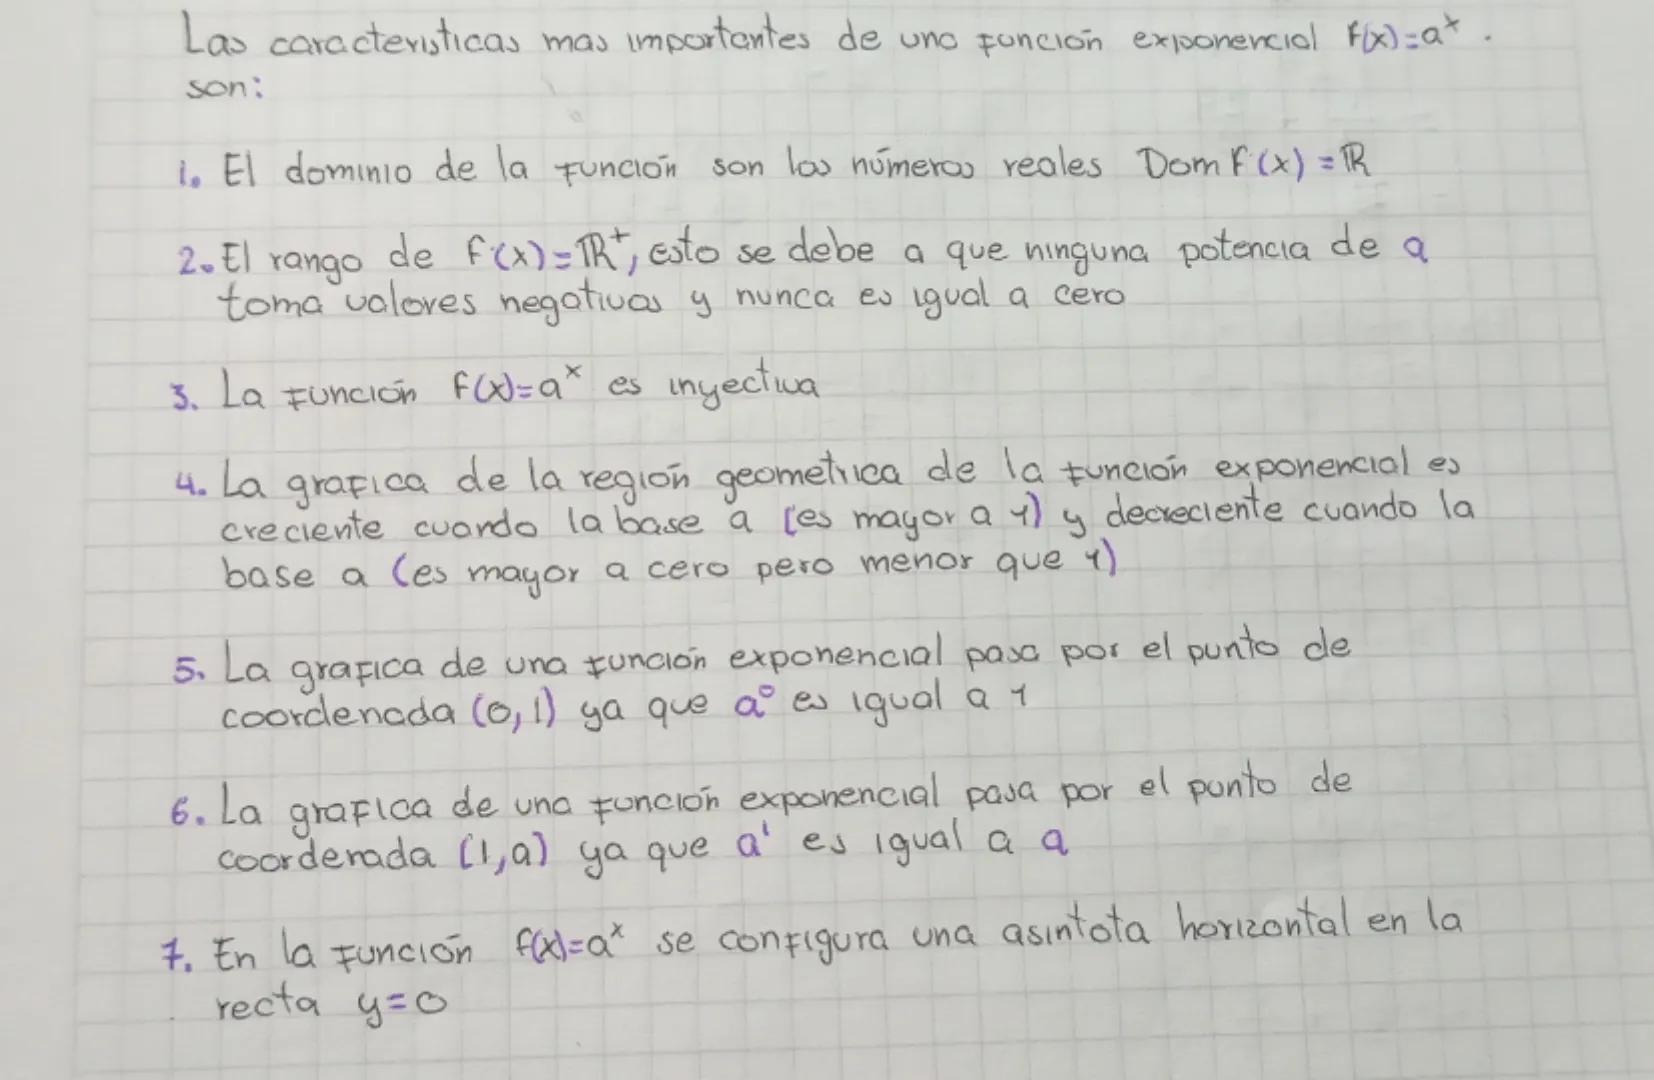 Las caracteristicas mas importantes de una función exponencial f(x)=aˣ.
son:
1. El dominio de la función son los números reales Dom F(x) = ℝ
2. El rango de f(x)=ℝ⁺, esto se debe a que ninguna potencia de a
toma valores negativos y nunca es igual a cero
3. La función f(x)=aˣ es inyectiva
4. La grafica de la región geometrica de la función exponencial es
creciente cuando la base a (es mayor a 1) y decreciente cuando la
base a (es mayor a cero pero menor que 1)
5. La grafica de una función exponencial pasa por el punto de
coordenada (0,1) ya que a⁰ es igual a 1
6. La grafica de una función exponencial pasa por el punto de
coordenada (1,a) ya que a¹ es igual a a
7. En la función f(x)=aˣ se configura una asintota horizontal en la
recta y=0